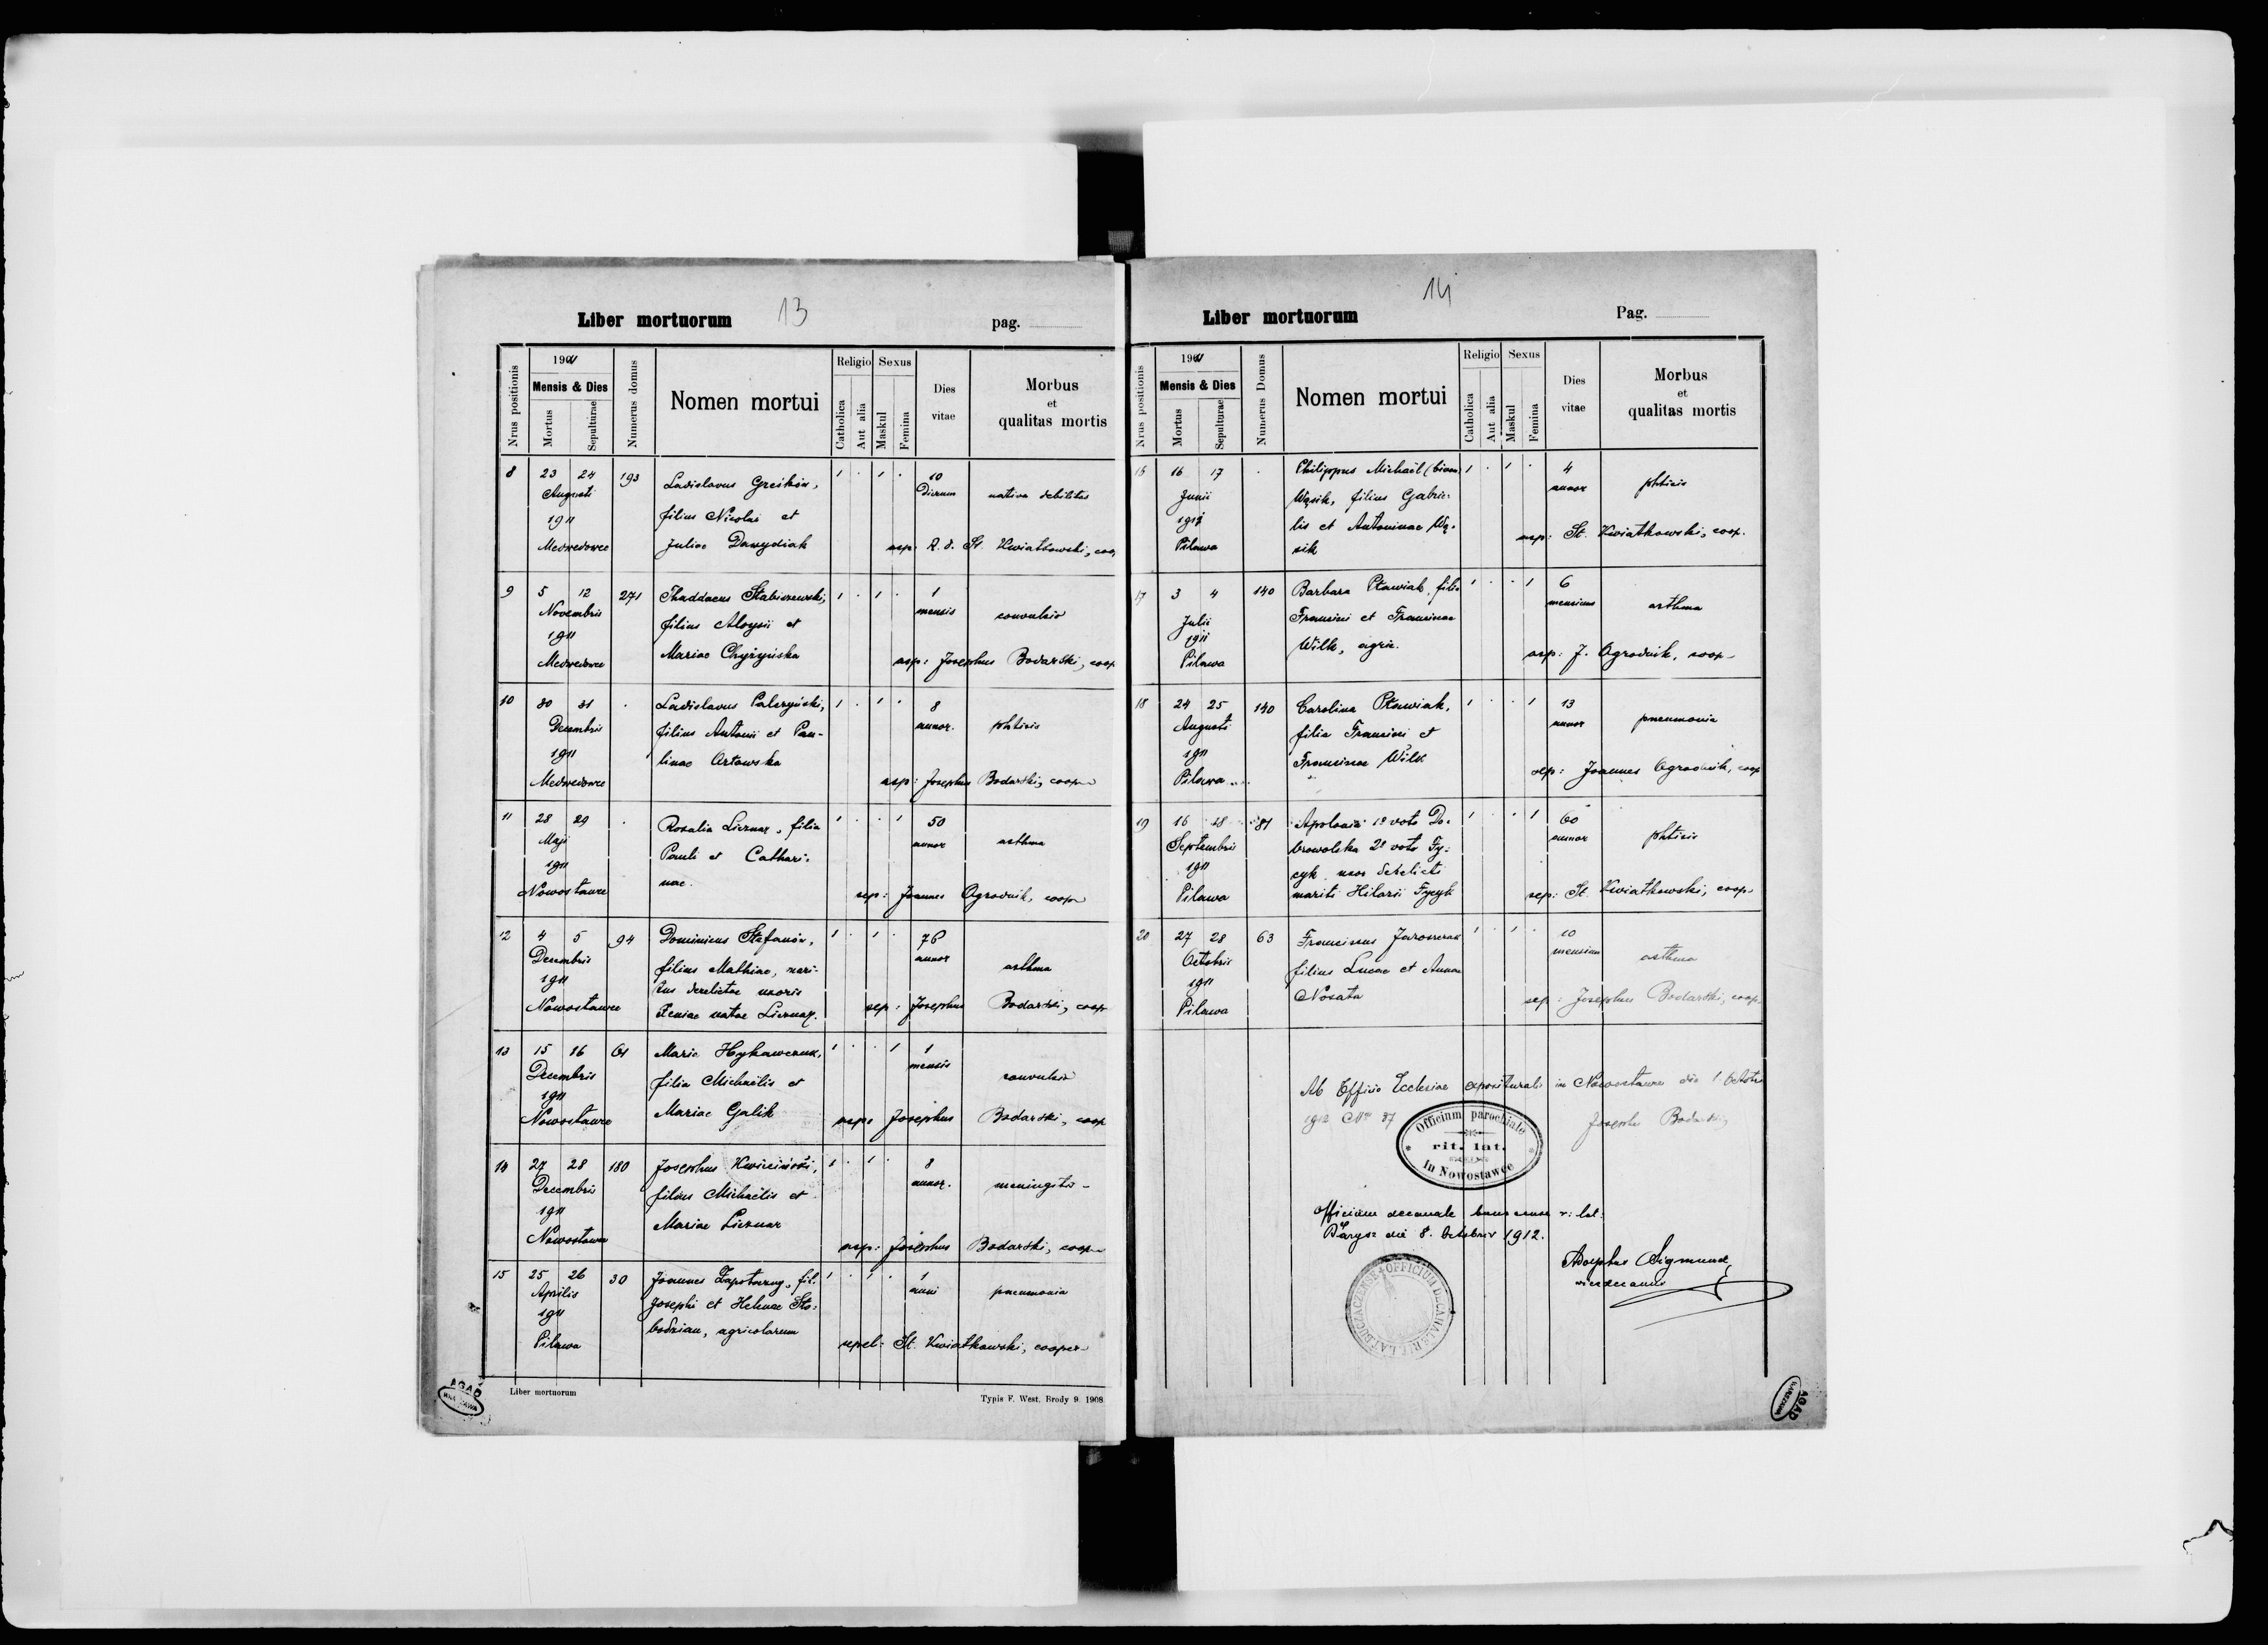 13
Liber mortuorum pag.
1911
Nrus positionis
Mensis & Dies
Mortus
Sepulturae
Numerus domus
Nomen mortui
Religio
Catholica
Aut alia
Sexus
Maskul
Femina
Dies
vitae
Morbus
et
qualitas mortis
8 23 24 193 Ladislaus Greskōw, 1 . 1 . 10
Augusti filius Nicolai et Dierum nativa debilitas
1911 Juliae Dawydiak
Medwedowce sep: R. d. St. Kwiatkowski, coop
9 5 12 271 Thaddaeus Stabiszewski, 1 . 1 . 1
Novembris filius Aloysii et mensis convulsio
1911 Mariae Chyżyńska
Medwedowce sep: Josephus Bodarski, coop
10 30 31 . Ladislaus Palczyński, 1 . 1 . 8
Decembris filius Antonii et Pau- annor. phtisis
1911 linae Orłowska
Medwedowce sep: Josephus Bodarski, coop
11 28 29 . Rosalia Licznar, filia 1 . . 1 50
Maji Pauli et Cathari- annor asthma
1911 nae.
Nowostawce sep: Joannes Ogrodnik, coop
12 4 5 94 Dominicus Stefanów, 1 . 1 . 76
Decembris filius Mathiae, mari- annor asthma
1911 tus derelictae uxoris
Nowostawce Xeniae natae Licznar. sep: Josephus Bodarski, coop
13 15 16 61 Maria Hykawczuk, 1 . . 1 1
Decembris filia Michaëlis et mensis convulsio
1911 Mariae Galik
Nowostawce sep: Josephus Bodarski, coop
14 27 28 180 Josephus Kwiciński, 1 . 1 . 8
Decembris filius Michaëlis et annor. meningitis
1911 Mariae Licznar
Nowostawce sep: Josephus Bodarski, coop
15 25 26 30 Joannes Zapotoczny, fil. 1 . 1 . 1
Aprilis Josephi et Helenae Sło- anni pneumonia
1911 bodzian, agricolarum
Pilawa sepel: St. Kwiatkowski, cooper
Liber mortuorum Typis F. West, Brody 9. 1908
AGAD
WARSZAWA
14
Liber mortuorum Pag.
1911
Nrus positionis
Mensis & Dies
Mortus
Sepulturae
Numerus Domus
Nomen mortui
Religio
Catholica
Aut alia
Sexus
Maskul
Femina
Dies
vitae
Morbus
et
qualitas mortis
16 17 . Philippus Michaël (binom) 1 . 1 . 4
Junii Wąsik, filius Gabrie- annor phtisis
lis et Antoninae Wą-
Pilawa sik sep: St. Kwiatkowski, coop.
17 3 4 140 Barbara Pławiak, filia 1 . . 1 6
Julii Francisci et Franciscae mensium asthma
1911 Wilk, agric.
Pilawa sep: J. Ogrodnik, coop
18 24 25 140 Carolina Pławiak, 1 . . 1 13
Augusti filia Francisci et annor pneumonia
1911 Franciscae Wilk
Pilawa sep: Joannes Ogrodnik, coop
19 16 18 81 Apolonia 1º voto Do- 1 . . 1 60
Septembris browolska 2º voto Fy- annor phtisis
1911 cyk uxor derelicti
Pilawa mariti Hilarii Fycyk sep: St. Kwiatkowski, coop
20 27 28 63 Franciscus Jaroszczak 1 . 1 . 10
Octobris filius Lucae et Annae mensium asthma
1911 Nosata
Pilawa sep: Josephus Bodarski, coop.
Ab Officio Ecclesiae expositurali in Nowostawce die 1. Octobr
1912 Nro 87 Josephus Bodarski
Officium parochiale
rit. lat.
in Nowostawce
Officium decanale r: lat:
Barysz die 8. Octobris 1912.
Adolphus Sigmund
vicedecanus
OFFICIUM DECANALE RIT. LAT. BUCZACZENSE
AGAD
WARSZAWA